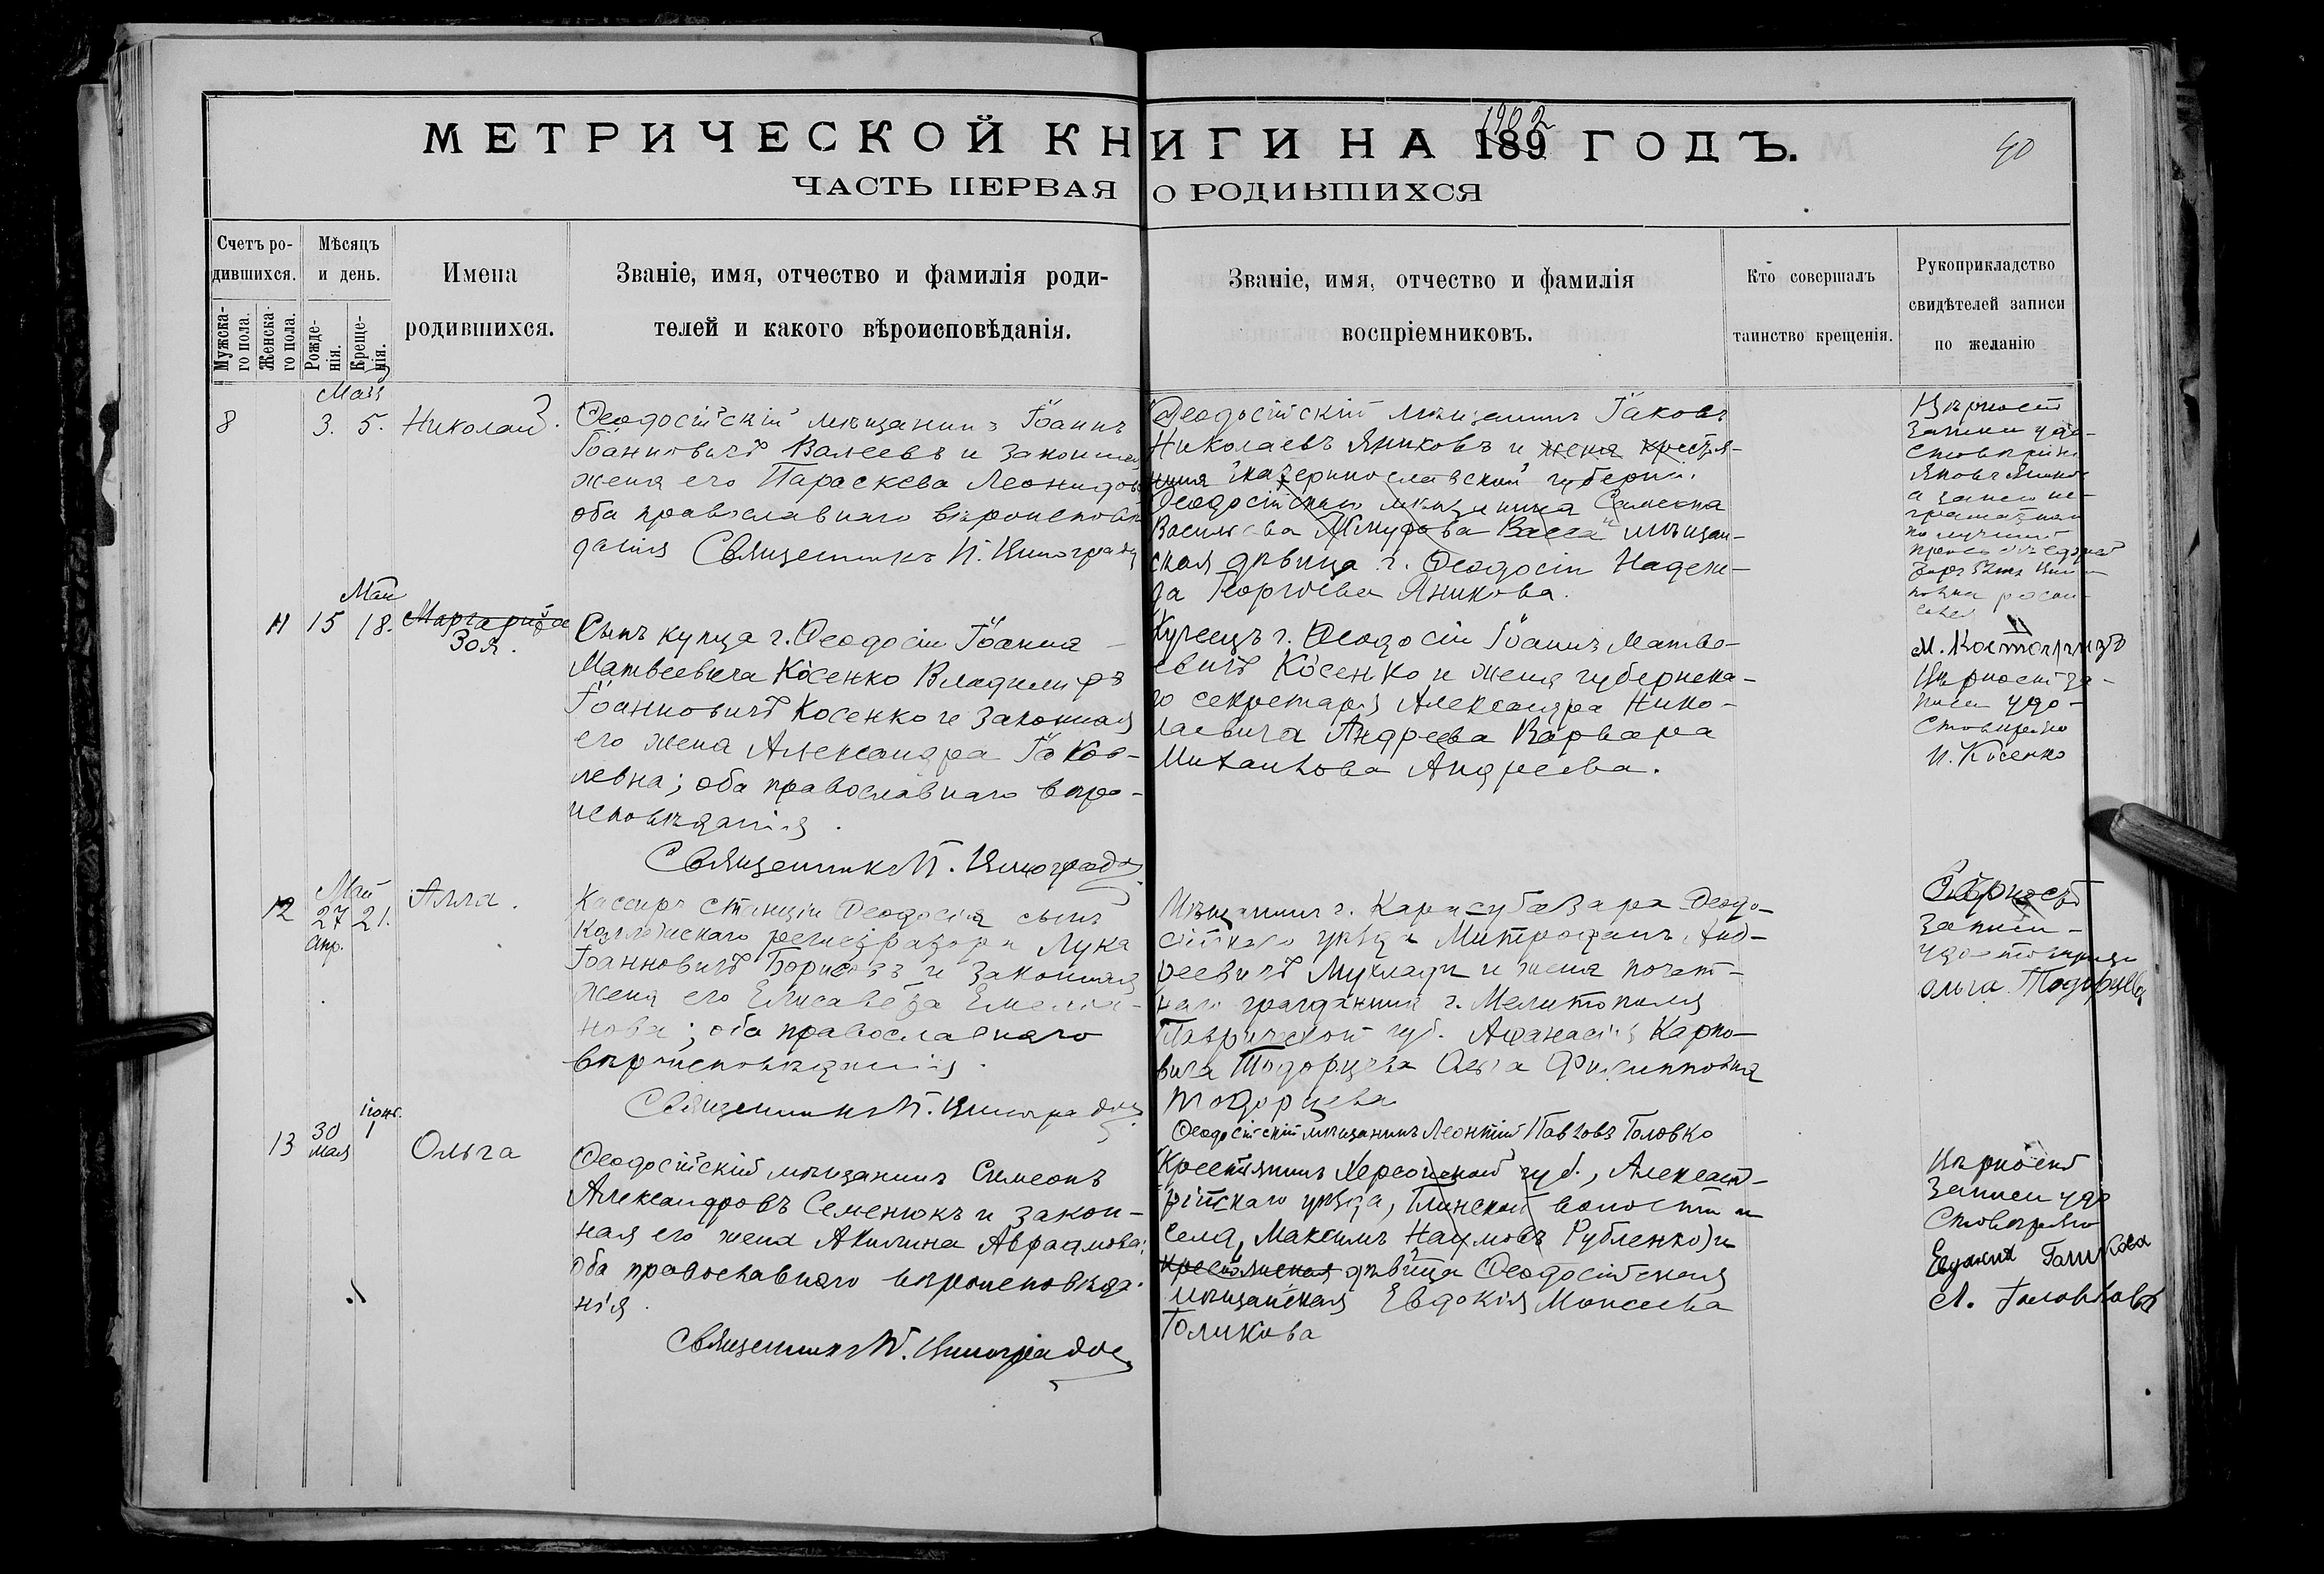 МЕТРИЧЕСКОЙ КНИГИ НА 189 1902 ГОДЪ.
40
ЧАСТЬ ПЕРВАЯ О РОДИВШИХСЯ
Счетъ ро-
дившихся.
Мужска-
го пола.
Женска-
го пола.
Мѣсяцъ
и день.
Рожде-
нія.
Креще-
нія.
Имена
родившихся.
Званіе, имя, отчество и фамилія роди-
телей и какого вѣроисповѣданія.
Званіе, имя, отчество и фамилія
воспріемниковъ.
Кто совершалъ
таинство крещенія.
Рукоприкладство
свидѣтелей записи
по желанію
Мая
8 3. 5. Николай.
Ѳеодосійскій мѣщанинъ Іоаннъ
Іоанновичъ Валеевъ и законная
жена его Параскева Леонидова
оба православнаго вѣроисповѣ
данія Священникъ П. Виноградовъ
Ѳеодосійскій мѣщанинъ Іаковъ
Николаевъ Яниковъ и жена крестья-
нина Екатеринославской губерніи.
Ѳеодосійскаго мѣщанина Симеона
Васильева Васса мѣщан-
ская дѣвица г. Ѳеодосіи Надеж-
да Георгіева Яникова.
Вѣрность
записи удо-
стовѣряю
Яковъ Яников
а за нею не-
грамотной
по личной
Май
11 15 18. Маргарита
Зоя.
Сынъ купца г. Ѳеодосіи Іоанна
Матвеевича Косенко Владиміръ
Іоанновичъ Косенко и законная
его жена Александра Іаков-
левна; оба православнаго вѣро-
исповѣданія.
Священникъ П. Виноградовъ
Купецъ г. Ѳеодосіи Іоаннъ Матве-
евичъ Косенко и жена губернска-
го секретаря Александра Нико-
лаевича Андреева Варвара
Михайлова Андреева.
Вѣрность за-
писи удо-
стовѣряю
И. Косенко
Май
12 27 21.
Апр.
Алла.
Кассиръ станціи Ѳеодосія сынъ
Коллежскаго регистратора Лука
Іоанновичъ Борисовъ и законная
жена его Елисавета Емелья-
нова; оба православнаго
вѣроисповѣданія.
Священникъ П. Виноградовъ
Мѣщанинъ г. Карасубазара Ѳеодо-
сійскаго уѣзда Митрофанъ Анд-
реевичъ и жена почет-
наго гражданина г. Мелитополя
Таврической губ. Аѳанасія Карпо-
вича Тодорцева Ольга Филипповна
Тодорцева
Вѣрность
записи
удостовѣряю
Ольга Тодорцева
Іюнь.
13 30 1
мая
Ольга
Ѳеодосійскій мѣщанинъ Симеонъ
Александровъ Семенюкъ и закон-
ная его жена Акилина Авраамова;
оба православнаго вѣроисповѣда-
нія.
Священникъ П. Виноградовъ
Ѳеодосійскій мѣщанинъ Леонтій Павловъ Головко
(Крестьянинъ Херсонской губ., Александ-
рійскаго уѣзда, Глинской волости и
села, Максимъ Наумовъ Рубленко) и
крестьянская дѣвица Ѳеодосійская
мѣщанская Евдокія Моисеева
Голикова
Вѣрность
записи удо
стовѣряю
Евдокия Галикова